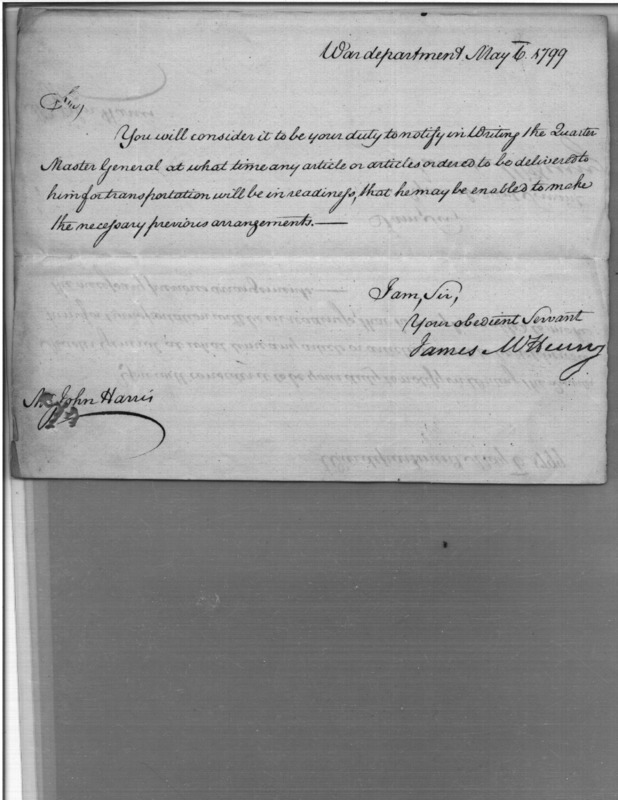 War department May 6. 1799
Sir,
You will consider it to be your duty to notify in Writing the Quarter
Master General at what time any article or articles ordered to be delivered to
him for transportation will be in readiness, that he may be enabled to make
the necessary previous arrangements.—
I am, Sir,
Your obedient Servant
James McHenry
Mr. John Harris